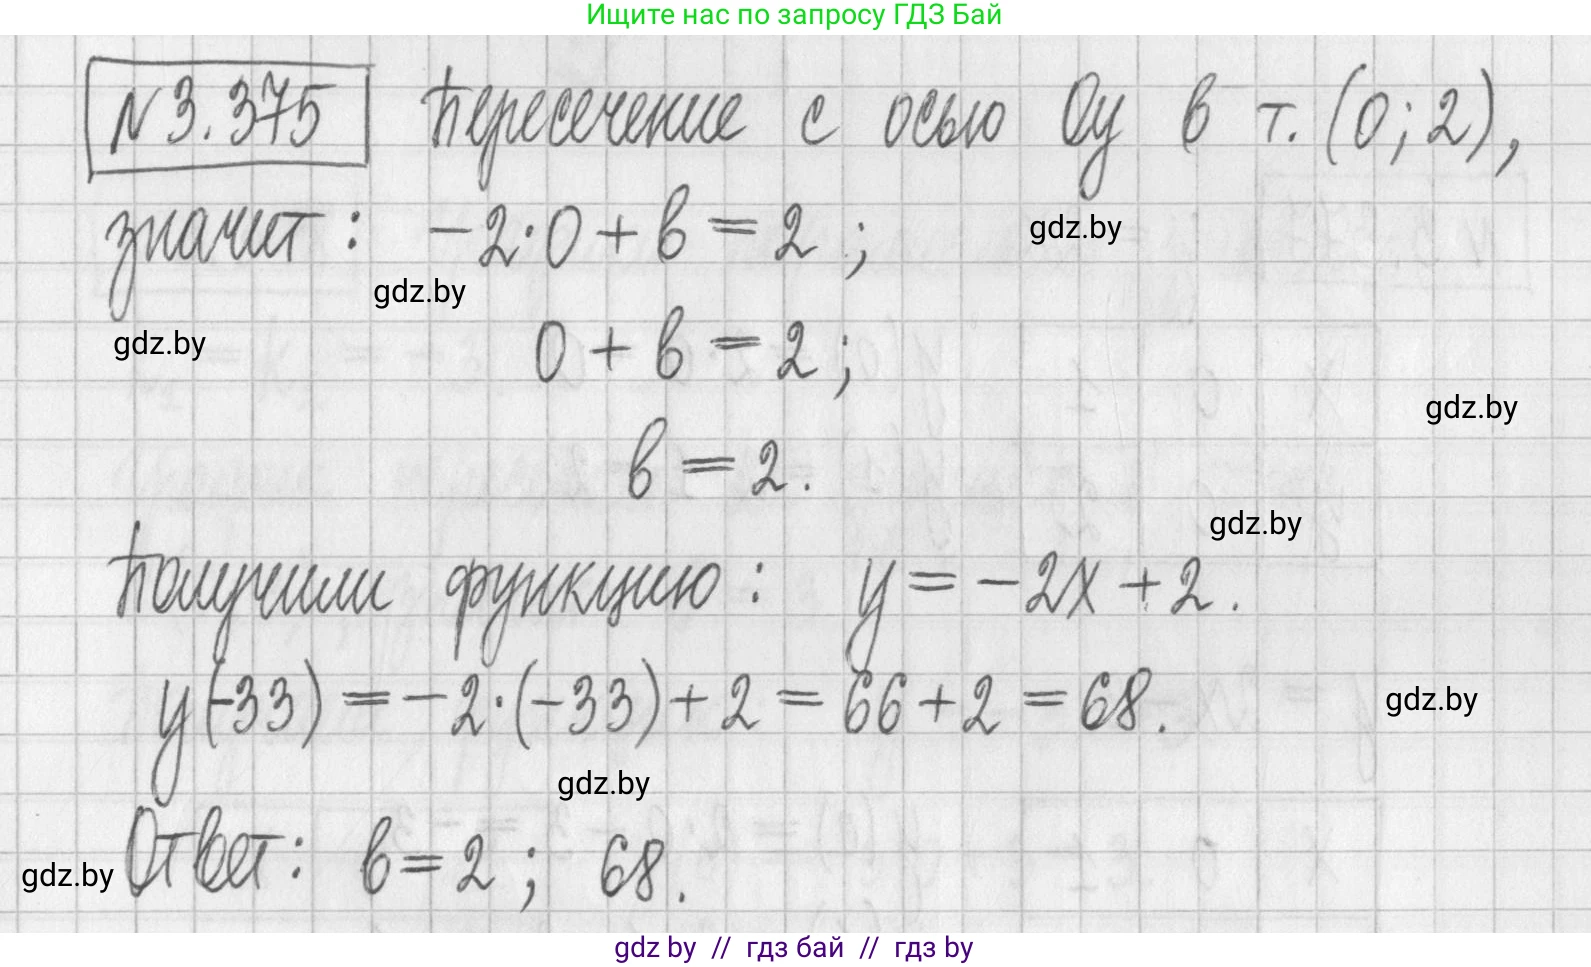 Ищите нас по запросу ГДЗ Бай
№3.375 Пересечение с осью Оу в т. (0; 2),
значит: -2·0 + в = 2;
gdz.by
gdz.by
gdz.by
0 + в = 2;
gdz.by
в = 2.
gdz.by
Получили функцию: у = -2х + 2.
у(-33) = -2·(-33) + 2 = 66 + 2 = 68.
gdz.by
gdz.by
Ответ: в = 2; 68.
gdz.by
gdz by // гдз бай // гдз by